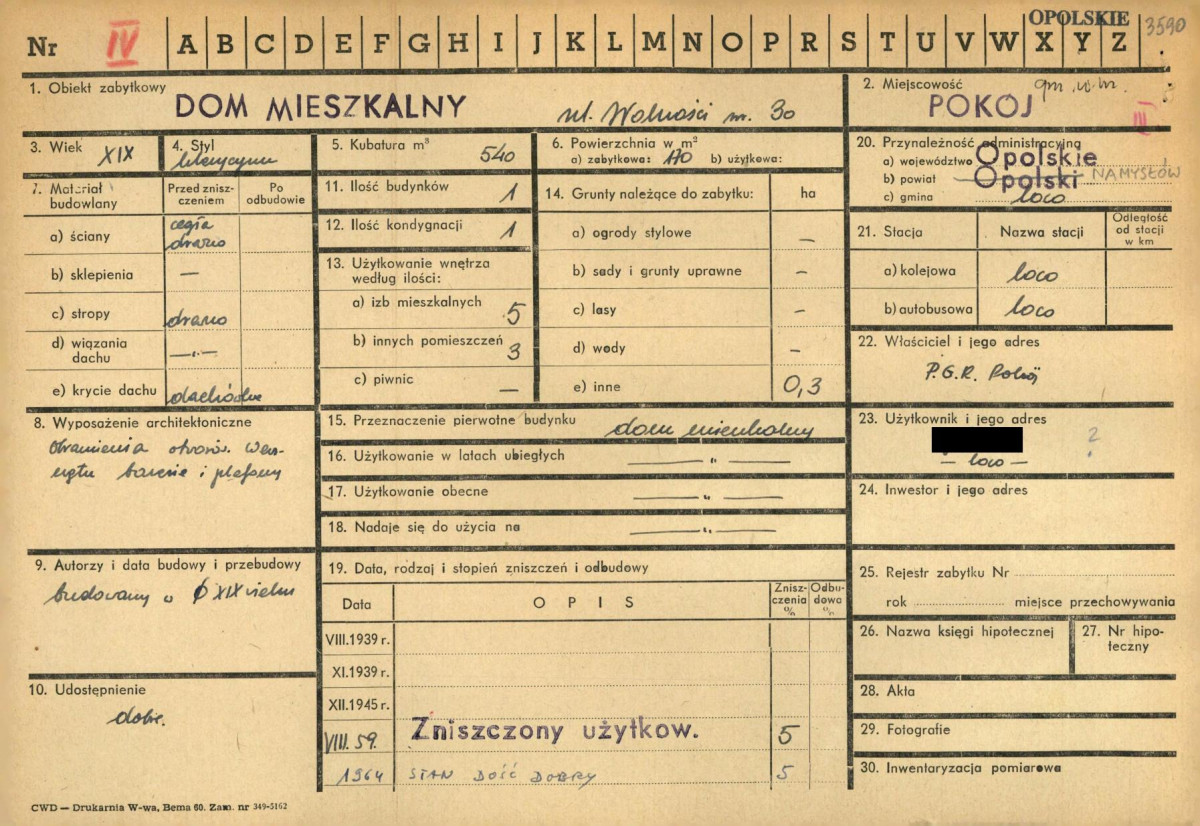 OPOLSKIE
3590
Nr IV A B C D E F G H I J K L M N O P R S T U V W X Y Z
1. Obiekt zabytkowy
DOM MIESZKALNY ul. Wolności nr. 30
2. Miejscowość
POKÓJ
IV
3. Wiek XIX
4. Styl
5. Kubatura m³ 540
6. Powierzchnia w m²
a) zabytkowa: 170 b) użytkowa:
20. Przynależność administracyjną
a) województwo Opolskie
b) powiat Opolski NAMYSŁÓW
c) gmina loco
7. Materiał budowlany
Przed znisz-
czeniem
Po
odbudowie
a) ściany cegła
drzewo
b) sklepienia —
c) stropy drzewo
d) wiązania
dachu —„—
e) krycie dachu
11. Ilość budynków 1
12. Ilość kondygnacji 1
13. Użytkowanie wnętrza
według ilości:
a) izb mieszkalnych 5
b) innych pomieszczeń 3
c) piwnic —
14. Grunty należące do zabytku: ha
a) ogrody stylowe —
b) sady i grunty uprawne —
c) lasy —
d) wody —
e) inne 0,3
21. Stacja
Nazwa stacji
Odległość
od stacji
w km
a) kolejowa loco
b) autobusowa loco
22. Właściciel i jego adres
P.G.R. Pokój
8. Wyposażenie architektoniczne
Obramienia otworów. Wew-
nątrz i plafony
15. Przeznaczenie pierwotne budynku dom mieszkalny
16. Użytkowanie w latach ubiegłych —„—
17. Użytkowanie obecne —„—
18. Nadaje się do użycia na —„—
23. Użytkownik i jego adres
?
— loco —
24. Inwestor i jego adres
9. Autorzy i data budowy i przebudowy
budowany XIX wieku
10. Udostępnienie
dobre.
19. Data, rodzaj i stopień zniszczeń i odbudowy
Data OPIS
Znisz-
czenia
%
Odbu-
dowa
%
VIII.1939 r.
XI.1939 r.
XII.1945 r.
VIII.59. Zniszczony użytkow. 5
1964 STAN DOŚĆ DOBRY 5
25. Rejestr zabytku Nr
rok miejsce przechowywania
26. Nazwa księgi hipotecznej
27. Nr hipo-
teczny
28. Akta
29. Fotografie
30. Inwentaryzacja pomiarowa
CWD — Drukarnia W-wa, Bema 60. Zam. nr 349-5162